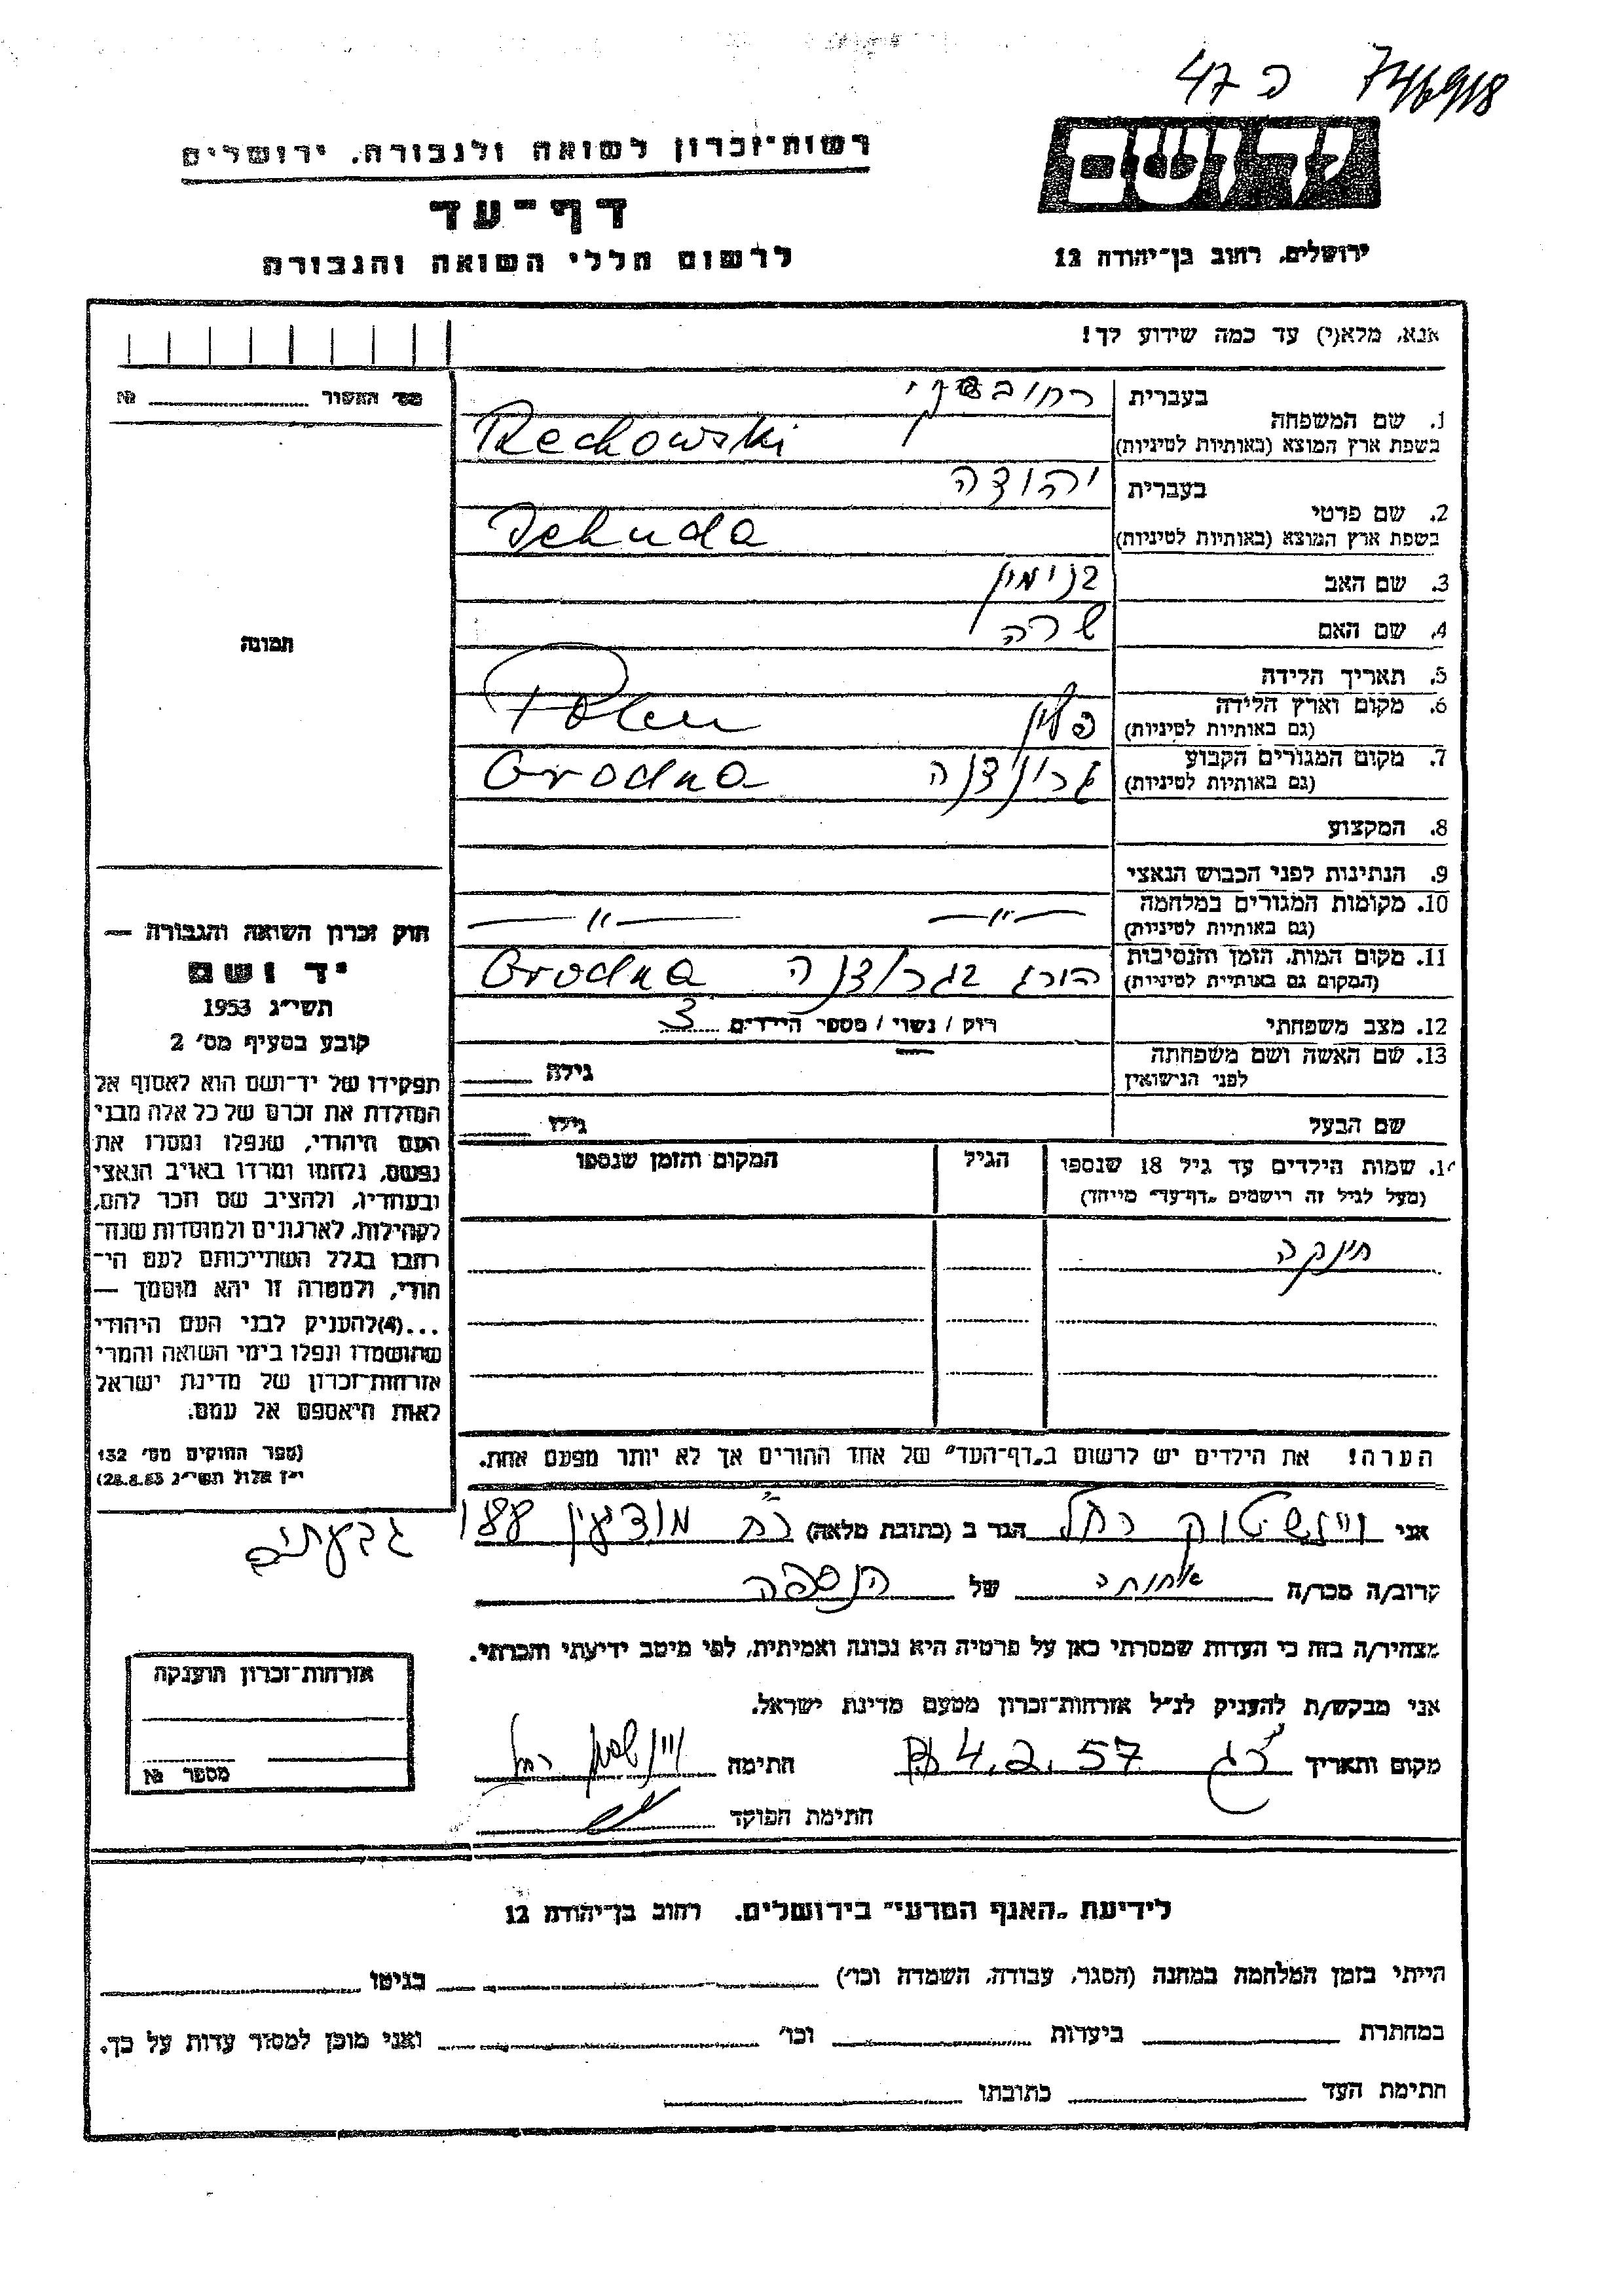 47 ה 746918
יד ושם
ירושלים, רחוב בן־יהודה 12
רשות־זכרון לשואה ולגבורה, ירושלים
דף־עד
לרשום חללי השואה והגבורה
אנא, מלא(י) עד כמה שידוע לך!
מס׳ האשור № 
1. שם המשפחה בעברית רחובסקי
בשפת ארץ המוצא (באותיות לטיניות) Rechowski
2. שם פרטי בעברית יהודה
בשפת ארץ המוצא (באותיות לטיניות) Jehuda
3. שם האב בנימין
4. שם האם שרה
5. תאריך הלידה
6. מקום וארץ הלידה (גם באותיות לטיניות) פולין Polen
7. מקום המגורים הקבוע (גם באותיות לטיניות) גרודנה Grodna
8. המקצוע
9. הנתינות לפני הכבוש הנאצי
10. מקומות המגורים במלחמה (גם באותיות לטיניות) —"— —"—
11. מקום המות, הזמן והנסיבות (המקום גם באותיות לטיניות) הורג בגרודנה Grodna
12. מצב משפחתי רוק / נשוי / מספר הילדים 3
13. שם האשה ושם משפחתה לפני הנישואין גילה
שם הבעל גילו
14. שמות הילדים עד גיל 18 שנספו הגיל המקום והזמן שנספו
(מעל לגיל זה רושמים „דף־עד״ מיוחד)
חינקה
הערה! את הילדים יש לרשום ב„דף־העד״ של אחד ההורים אך לא יותר מפעם אחת.
תמונה
חוק זכרון השואה והגבורה —
יד ושם
תשי״ג 1953
קובע בסעיף מס׳ 2
תפקידו של יד־ושם הוא לאסוף אל
המולדת את זכרם של כל אלה מבני
העם היהודי, שנפלו ומסרו את
נפשם, נלחמו ומרדו באויב הנאצי
ובעוזריו, ולהציב שם וזכר להם,
לקהילות, לארגונים ולמוסדות שנח־
רבו בגלל השתייכותם לעם הי־
הודי, ולמטרה זו יהא מוסמך —
...(4)להעניק לבני העם היהודי
שהושמדו ונפלו בימי השואה והמרי
אזרחות־זכרון של מדינת ישראל
לאות היאספם אל עמם.
(ספר החוקים מס׳ 132
י״ז אלול תשי״ג 28.8.53)
אני ויינשטוק רחל הגר ב (כתובת מלאה) רח׳ מודיעין 188
גבעתיים
קרוב/ה מכר/ה אחותה של הנספה
מצהיר/ה בזה כי העדות שמסרתי כאן על פרטיה היא נכונה ואמיתית, לפי מיטב ידיעתי והכרתי.
אני מבקש/ת להעניק לנ״ל אזרחות־זכרון מטעם מדינת ישראל.
מקום ותאריך 4.2.57 חתימה רחל
חתימת הפוקד
אזרחות־זכרון הוענקה
מספר №
לידיעת „האגף המדעי״ בירושלים, רחוב בן־יהודה 12
הייתי בזמן המלחמה במחנה (הסגר, עבודה, השמדה וכו׳) בגיטו
במחתרת ביערות וכו׳ ואני מוכן למסור עדות על כך.
חתימת העד כתובתו